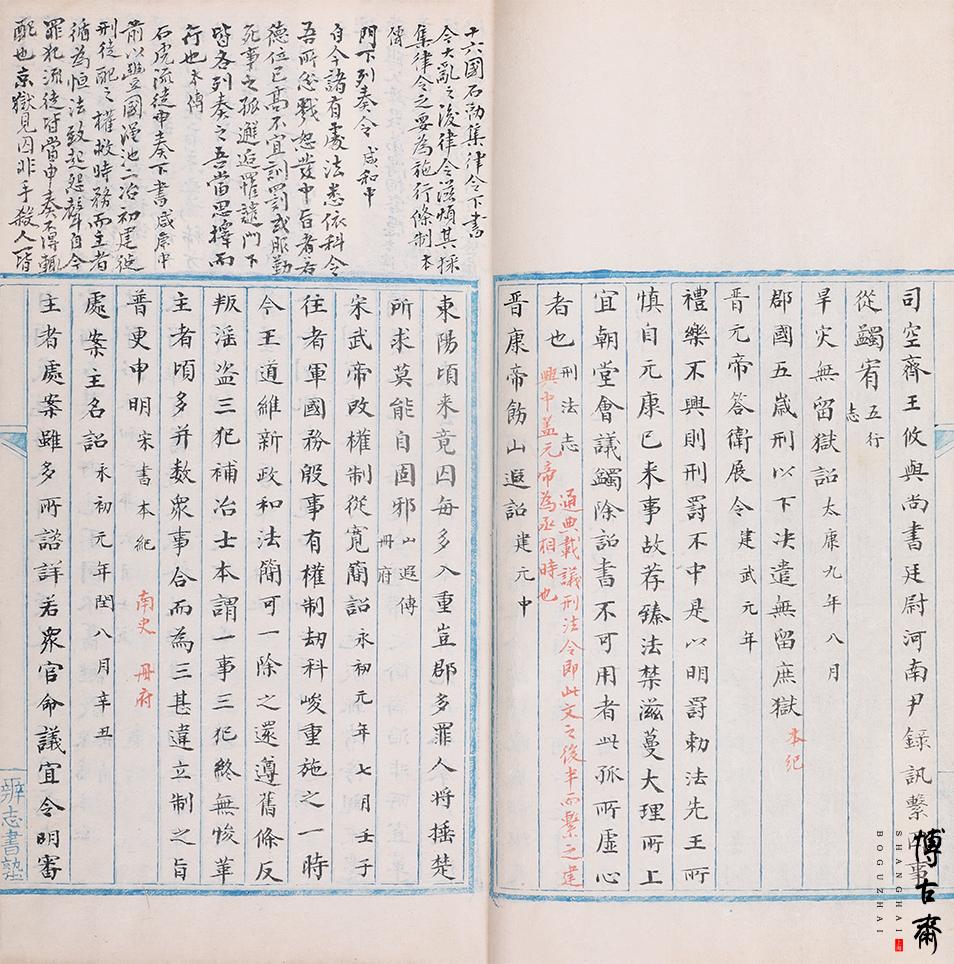 司空齊王攸與尚書廷尉河南尹錄訊繫囚事
從蠲宥五行志
旱灾無留獄詔太康九年八月
郡國五歲刑以下决遣無留庶獄本紀
晉元帝答衛展令建武元年
禮樂不興則刑罰不中是以明罰勑法先王所
慎自元康已来事故荐臻法禁滋蔓大理所上
宜朝堂會議蠲除詔書不可用者此孤所虛心
者也刑法志
通典載議刑法令即此文之後半而繫之建
興中盖元帝為丞相時也
晉康帝飭山遐詔建元中
東陽頃来竟囚每多入重豈郡多罪人将捶楚
所求莫能自固邪山遐傳冊府
宋武帝改權制從寬簡詔永初元年七月壬子
往者軍國務殷事有權制劫科峻重施之一時
今王道維新政和法簡可一除之還遵舊條反
叛淫盗三犯補冶士本謂一事三犯終無悛革
主者頃多并数衆事合而為三甚違立制之旨
普更申明宋書本紀南史冊府
處案主名詔永初元年閏八月辛丑
主者處案雖多所諮詳若衆官命議宜令明審
十六國石勒集律令下書
今大亂之後律令滋煩其採
集律令之要為施行條制本
傳
門下列奏令咸和中
自今諸有處法悉依科令
吾所忿戮怒發中旨者若
德位已高不宜訓罰或服勤
死事之孤邂逅罹譴門下
皆各列奏之吾當思擇而
行也本傳
石虎流徒申奏下書咸康中
前以豐國澠池二冶初建徙
刑徒配之權救時務而主者
循為恒法致起怨聲自今
罪犯流徒皆當申奏不得輒
配也京獄見囚非手殺人一皆
辨志書塾
博古齋
SHANGHAI
BOGUZHAI
上海